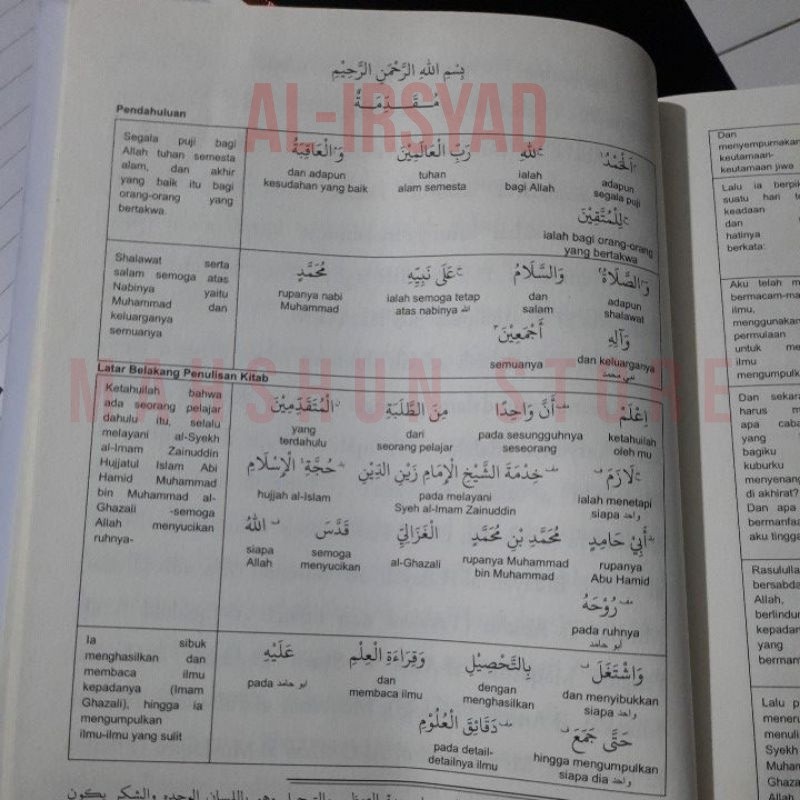 بِسْمِ اللهِ الرَّحْمَنِ الرَّحِيْمِ
AL-IRSYAD
مُقَدِّمَةٌ
Pendahuluan
Segala puji bagi
Allah tuhan semesta
alam, dan akhir
yang baik itu bagi
orang-orang yang
bertakwa.
اَلْحَمْدُ لِلّٰهِ رَبِّ الْعَالَمِيْنَ وَالْعَاقِبَةُ
adapun segala puji
ialah bagi Allah
tuhan alam semesta
dan adapun kesudahan yang baik
لِلْمُتَّقِيْنَ
ialah bagi orang-orang
yang bertakwa
Shalawat serta
salam semoga atas
Nabinya yaitu
Muhammad dan
keluarganya
semuanya
وَالصَّلَاةُ وَالسَّلَامُ عَلَى نَبِيِّهِ مُحَمَّدٍ
adapun shalawat
dan salam
ialah semoga tetap
atas nabinya الله
rupanya nabi
Muhammad
وَآلِهِ أَجْمَعِيْنَ
dan keluarganya
نبي محمد
semuanya
MAKSHUN STORE
Latar Belakang Penulisan Kitab
Ketahuilah bahwa
ada seorang pelajar
dahulu itu, selalu
melayani al-Syekh
al-Imam Zainuddin
Hujjatul Islam Abi
Hamid Muhammad
bin Muhammad al-
Ghazali -semoga
Allah menyucikan
ruhnya-
اِعْلَمْ أَنَّ وَاحِدًا مِنَ الطَّلَبَةِ الْمُتَقَدِّمِيْنَ
ketahuilah
oleh mu
pada sesungguhnya
seseorang
dari
seorang pelajar
yang
terdahulu
لَازَمَ خِدْمَةَ الشَّيْخِ الْإِمَامِ زَيْنِ الدِّيْنِ حُجَّةِ الْإِسْلَامِ
ialah menetapi
siapa واحد
pada melayani
Syeh al-Imam Zainuddin
hujjah al-Islam
أَبِيْ حَامِدٍ مُحَمَّدِ بْنِ مُحَمَّدٍ الْغَزَالِيِّ قَدَّسَ اللهُ
rupanya
Abu Hamid
rupanya Muhammad
bin Muhammad
al-Ghazali
semoga
menyucikan
siapa
Allah
رُوْحَهُ
pada ruhnya
ابو حامد
Ia sibuk
menghasilkan dan
membaca ilmu
kepadanya (Imam
Ghazali), hingga ia
mengumpulkan
ilmu-ilmu yang sulit
وَاشْتَغَلَ بِالتَّحْصِيْلِ وَقِرَاءَةِ الْعِلْمِ عَلَيْهِ
dan menyibukkan
siapa واحد
dengan
menghasilkan
dan
membaca ilmu
pada ابو حامد
حَتَّى جَمَعَ دَقَائِقَ الْعُلُوْمِ
hingga mengumpulkan
siapa dia واحد
pada detail-
detailnya ilmu
Dan
menyempurnakan
keutamaan-
keutamaan jiwa
Lalu ia
suatu hari
keadaan
dan
hatinya
berkata:
Aku telah
ilmu,
menggunakan
permulaan
untuk
ilmu
Dan
harus
apa
yang
bagiku
kuburku
di akhirat?
Dan apa
aku
Allah,
yang
Lalu
Syekh
Allah